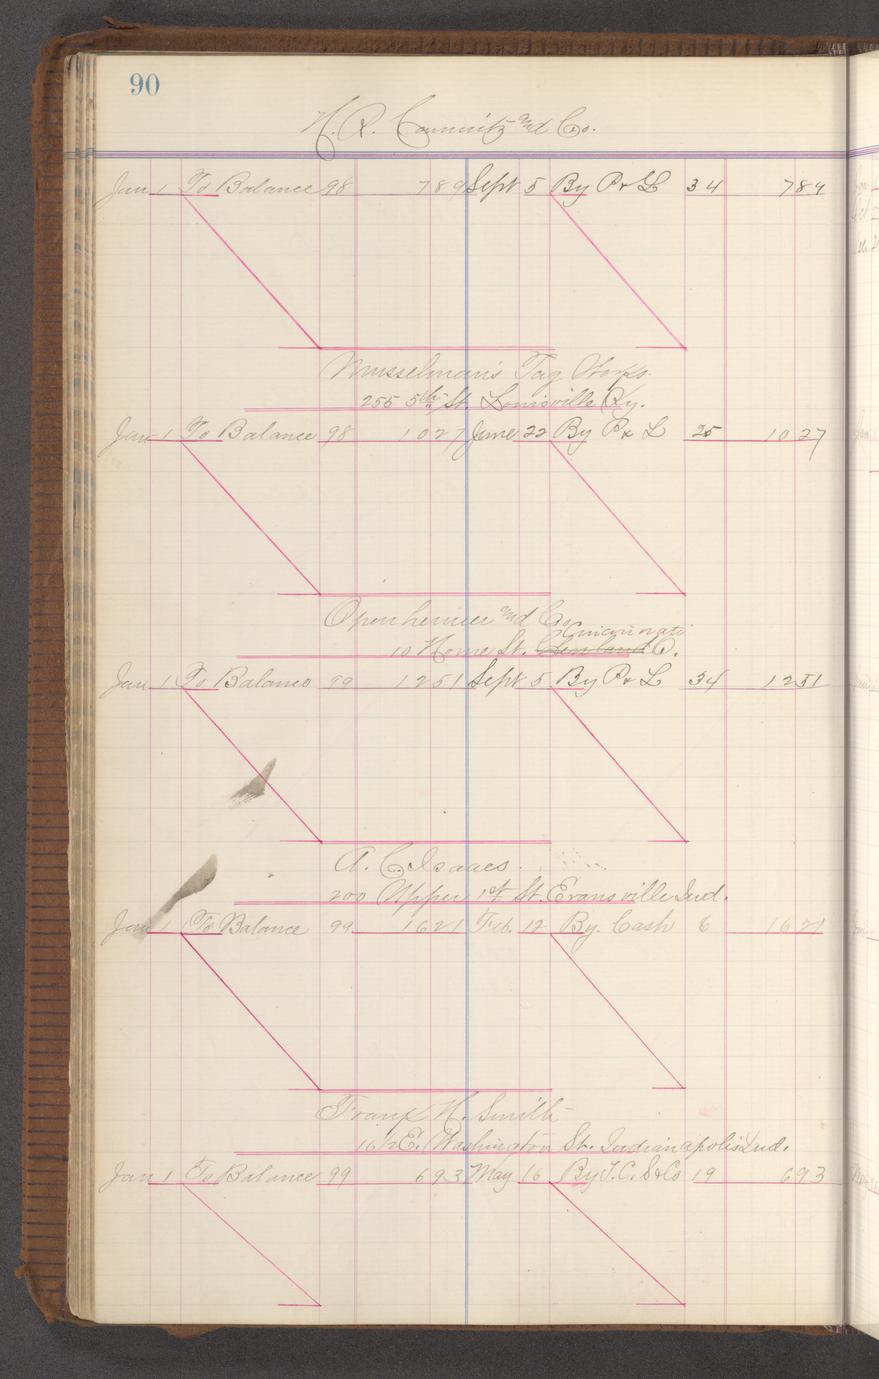 90
H. R. and Co.
Jan 1 To Balance 98 789 Sept 5 By P & L 34 789
Musselman's Tag Works.
255 5th St. Louisville Ky.
Jan 1 To Balance 98 1027 June 22 By P & L 25 1027
Openheimer and Co.
Cincinnati
10 Home St. Cleveland O.
Jan 1 To Balance 99 1251 Sept 5 By P & L 34 1251
A. C. Isaacs.
200 Upper 1st St. Evansville Ind.
Jan 1 To Balance 99 1621 Feb. 12 By Cash 6 1621
Frank H. Smith
16 1/2 E. Washington St. Indianapolis Ind.
Jan 1 To Balance 99 693 May 16 By T. C. S & Co 19 693